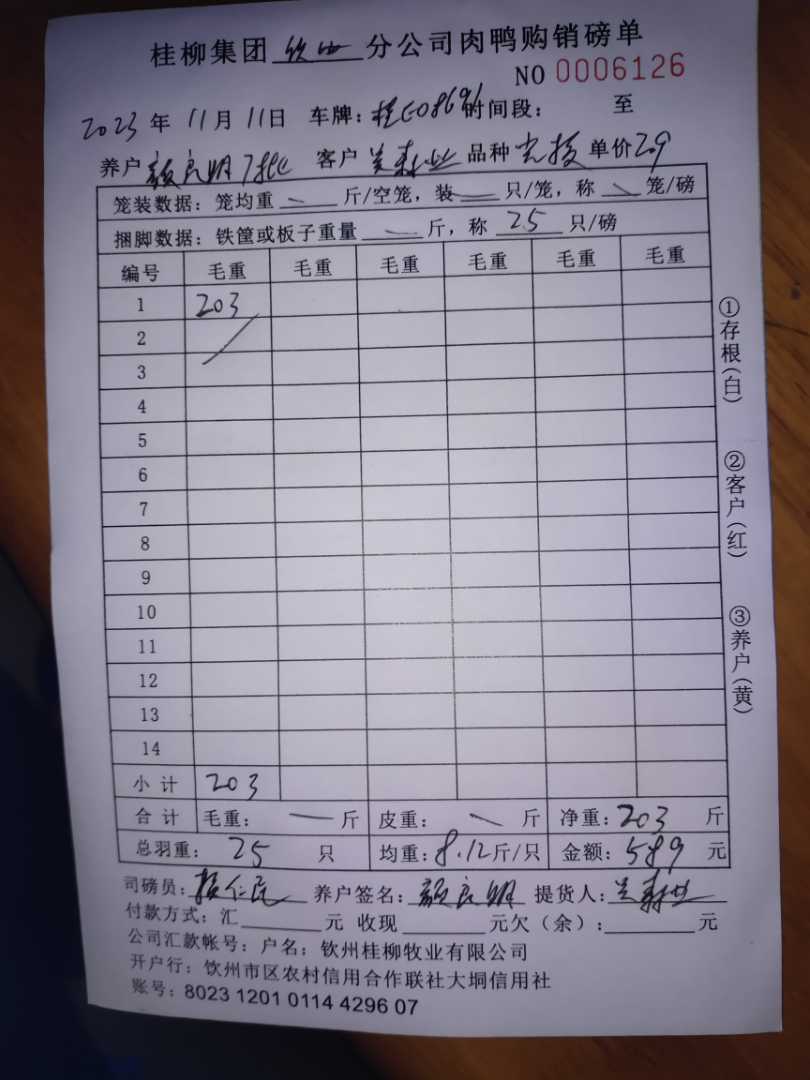 桂柳集团 钦州 分公司肉鸭购销磅单
NO 0006126
2023 年 11月 11日 车牌：桂E08691 时间段： 至
养户 颜良明7批 客户 品种 单价2.9
笼装数据：笼均重 — 斤/空笼，装 — 只/笼，称 — 笼/磅
捆脚数据：铁筐或板子重量 — 斤，称 25 只/磅
编号 毛重 毛重 毛重 毛重 毛重 毛重
1 203
2
3
4
5
6
7
8
9
10
11
12
13
14
小计 203
合计 毛重： — 斤 皮重： — 斤 净重：203 斤
总羽重： 25 只 均重：8.12斤/只 金额：589 元
司磅员： 养户签名：颜良明 提货人：
付款方式：汇 元 收现 元欠（余）： 元
公司汇款帐号：户名：钦州桂柳牧业有限公司
开户行：饮州市区农村信用合作联社大垌信用社
账号：8023 1201 0114 4296 07
①存根（白）
②客户（红）
③养户（黄）